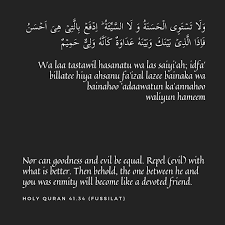 وَلَا تَسْتَوِى الْحَسَنَةُ وَ لَا السَّيِّئَةُ ؕ اِدْفَعْ بِالَّتِىْ هِىَ اَحْسَنُ
فَاِذَا الَّذِىْ بَيْنَكَ وَبَيْنَهٗ عَدَاوَةٌ كَاَنَّهٗ وَلِىٌّ حَمِيْمٌ
Wa laa tastawil hasanatu wa las saiyi'ah; idfa'
billatee hiya ahsanu fa'izal lazee bainaka wa
bainahoo 'adaawatun ka'annahoo
waliyun hameem
Nor can goodness and evil be equal. Repel (evil) with
what is better. Then behold, the one between he and
you was enmity will become like a devoted friend.
HOLY QURAN 41:34 (FUSSILAT)